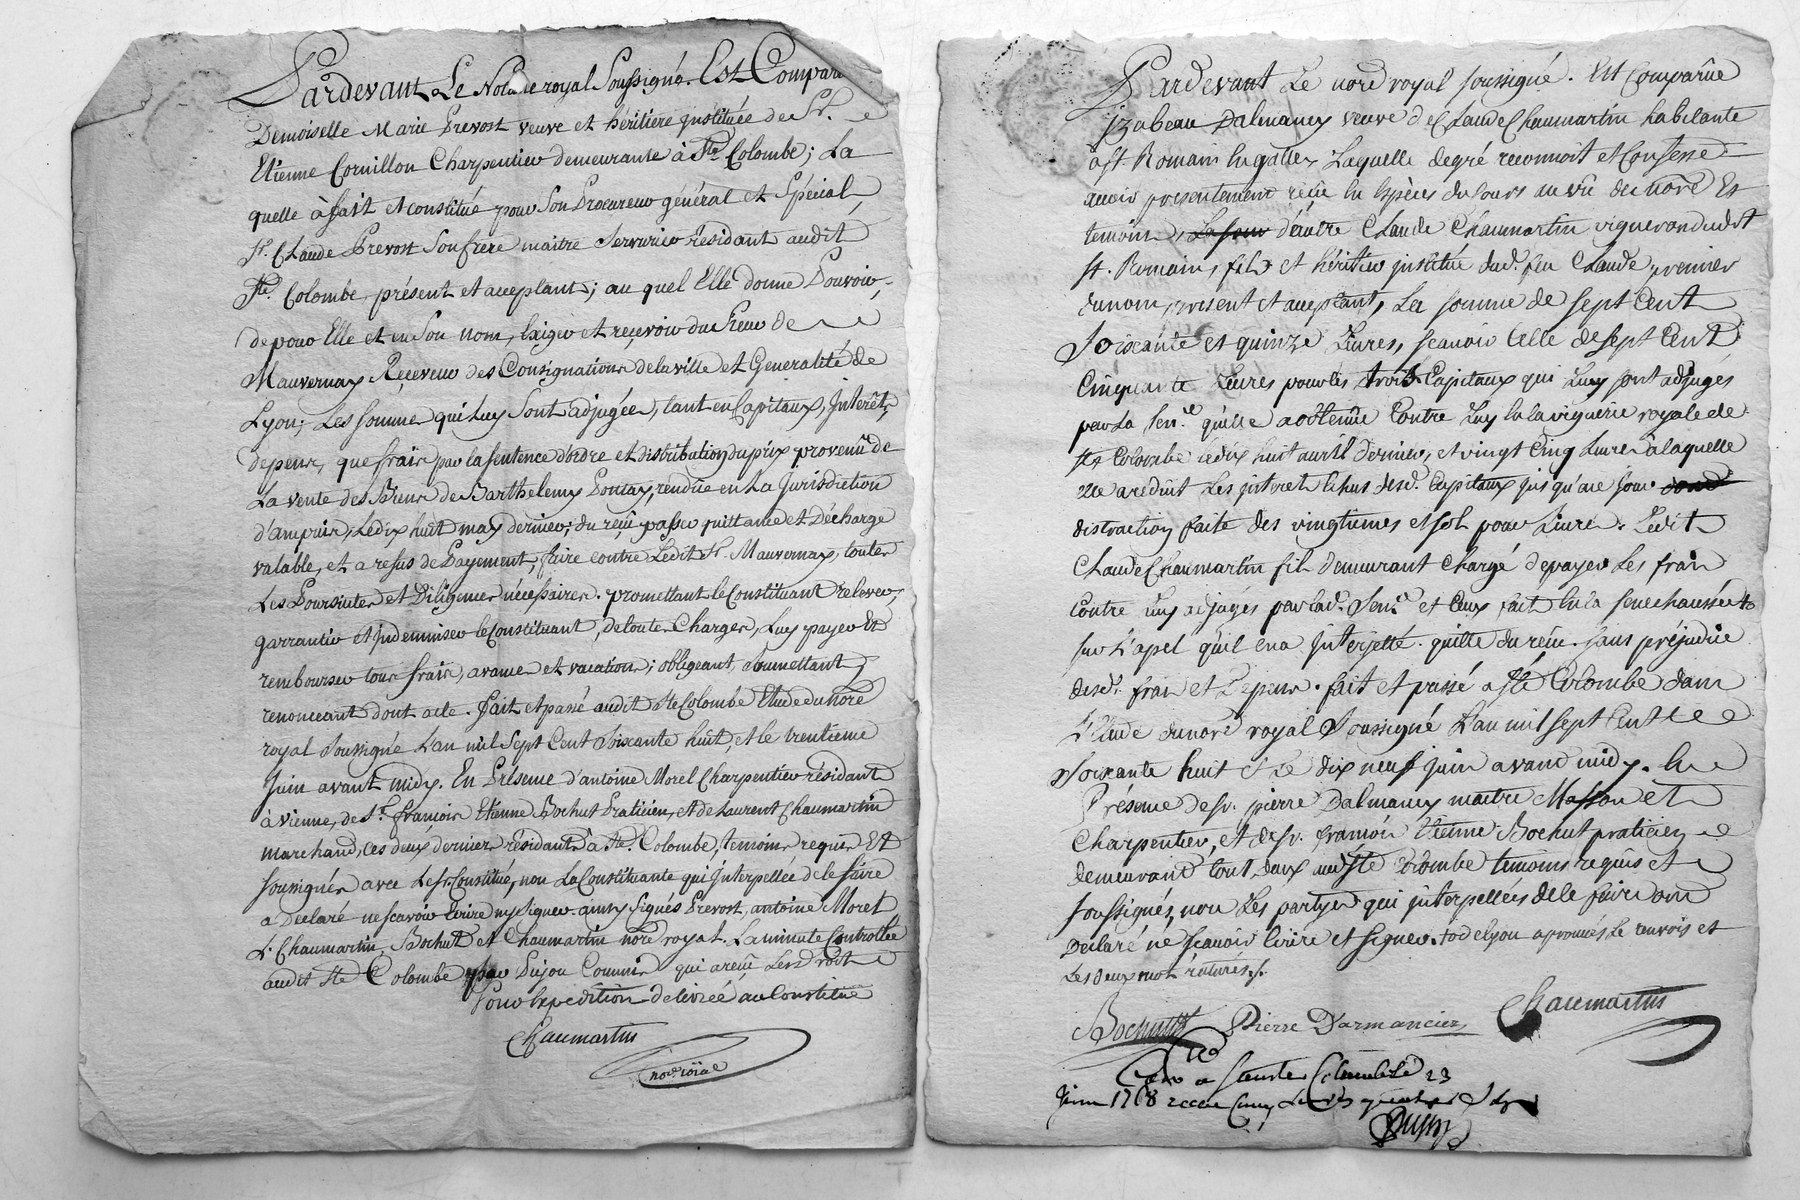 Pardevant Le Notaire royal Soussigné. Est Comparu
Demoiselle Marie Prevost veuve et héritiere instituée de Sr.
Etienne Cornillon Charpentier demeurante à Ste Colombe; La
quelle à fait et constitué pour Son Procureur général et Spécial,
Sr. Claude Prevost Son frere maitre Serrurier résidant audit
Ste. Colombe, présent et acceptant; au quel Elle donne Pouvoir,
de pour Elle et en Son nom, Exiger et reçevoir du Sieur de
Mauvernay Reçeveur des Consignations de la ville et Generalité de
Lyon; Les Sommes qui Luy Sont adjugées, tant en Capitaux, Interêts,
depens, que frais par la Sentence d'ordre et distribution du prix provenu de
La vente des Biens de Barthelemy Poncay, rendüe en La Jurisdiction
d'ampuis, Le dix huit may dernier; du reçû passer quittance et Décharge
valable, et a refus de Payement, faire contre Ledit Sr. Mauvernay, toutes
Les Poursuites et Diligences nécessaires. promettant le Constituant relever,
garrantir et Indemniser le Constituant, de toutes Charges, Luy payer Et
rembourser tous frais, avances et vacations; obligeant, Soumettant,
renonceant dont acte. fait et passé audit Ste Colombe Etude du nore
royal Soussigné L'an mil Sept Cent Soixante huit, et le trentieme
Juin avant midy. En Présence d'antoine Morel Charpentier résidant
à vienne, de Sr. françois Etienne Bochut Praticien, et de Laurent Chaumartin
Marchand, ces deux derniers résidants à Ste. Colombe, temoins requis Et
soussignés avec Le Sr. Constitué, non La Constituante qui Interpellée de le faire
a Déclaré ne Scavoir Ecrire ny Signer. ainsy Signés Prevost, antoine Morel
L. Chaumartin, Bochut et Chaumartin nore royal. La minute Controllée
audit Ste Colombe par Dujou Commis qui a reçu Les droits
Pour Expedition delivrée au Constitué
Chaumartin
nore. roïal
Pardevant Le nore royal soussigné. Est Comparüe
Izabeau Dalmancy veuve de Claude Chaumartin habitante
à St Romain En gallez Laquelle de gré reconnoit et Confesse
avoir presentement reçu En Espèces du Cours au vû du nore Et
temoins, La Som d'autre Claude Chaumartin vigneron dudt
St. Romain, fils et héritier institué dud. feu Claude, premier
du nom, present et acceptant, La Somme de Sept Cent
Soixante et quinze Livres, scavoir Celle de Sept Cent
Cinquante Livres pour les trois Capitaux qui Luy sont adjugés
par La Sence. qu'elle a obtenüe Contre Luy En la viguerie royale de
Ste Colombe Le dix huit avril dernier, et vingt Cinq Livres à laquelle
Elle a reduit Les interets Echus desd. Capitaux jusqu'au jour
distraction faite des vingtiemes et sol pour Livre. Ledit
Claude Chaumartin fils demeurant Chargé de payer Les frais
Contre Luy adjugés par lad. Sence. et Ceux fait En la Senechaussée
sur L'apel qu'il en a Interjetté. quitte du reçu. sans préjudice
desd. frais et Depens. fait et passé à Ste Colombe dans
L'Etude du nore royal Soussigné L'an mil sept Cent
Soixante huit et Le dix neuf juin avant midy. En
Présence de Sr. pierre Dalmancy maitre Masson et
Charpentier, et de Sr. françois Etienne Bochut praticien
demeurants tout deux aud Ste Colombe temoins requis et
Soussignés, non Les partyes qui interpellées de le faire ont
Déclaré ne scavoir Ecrire et signer. approuvés Le renvois et
Les deux mots raturés.
Bochut Pierre Darmancier Chaumartin
a Sainte Colombe Le 23
juin 1768 reçu Cinq Livres